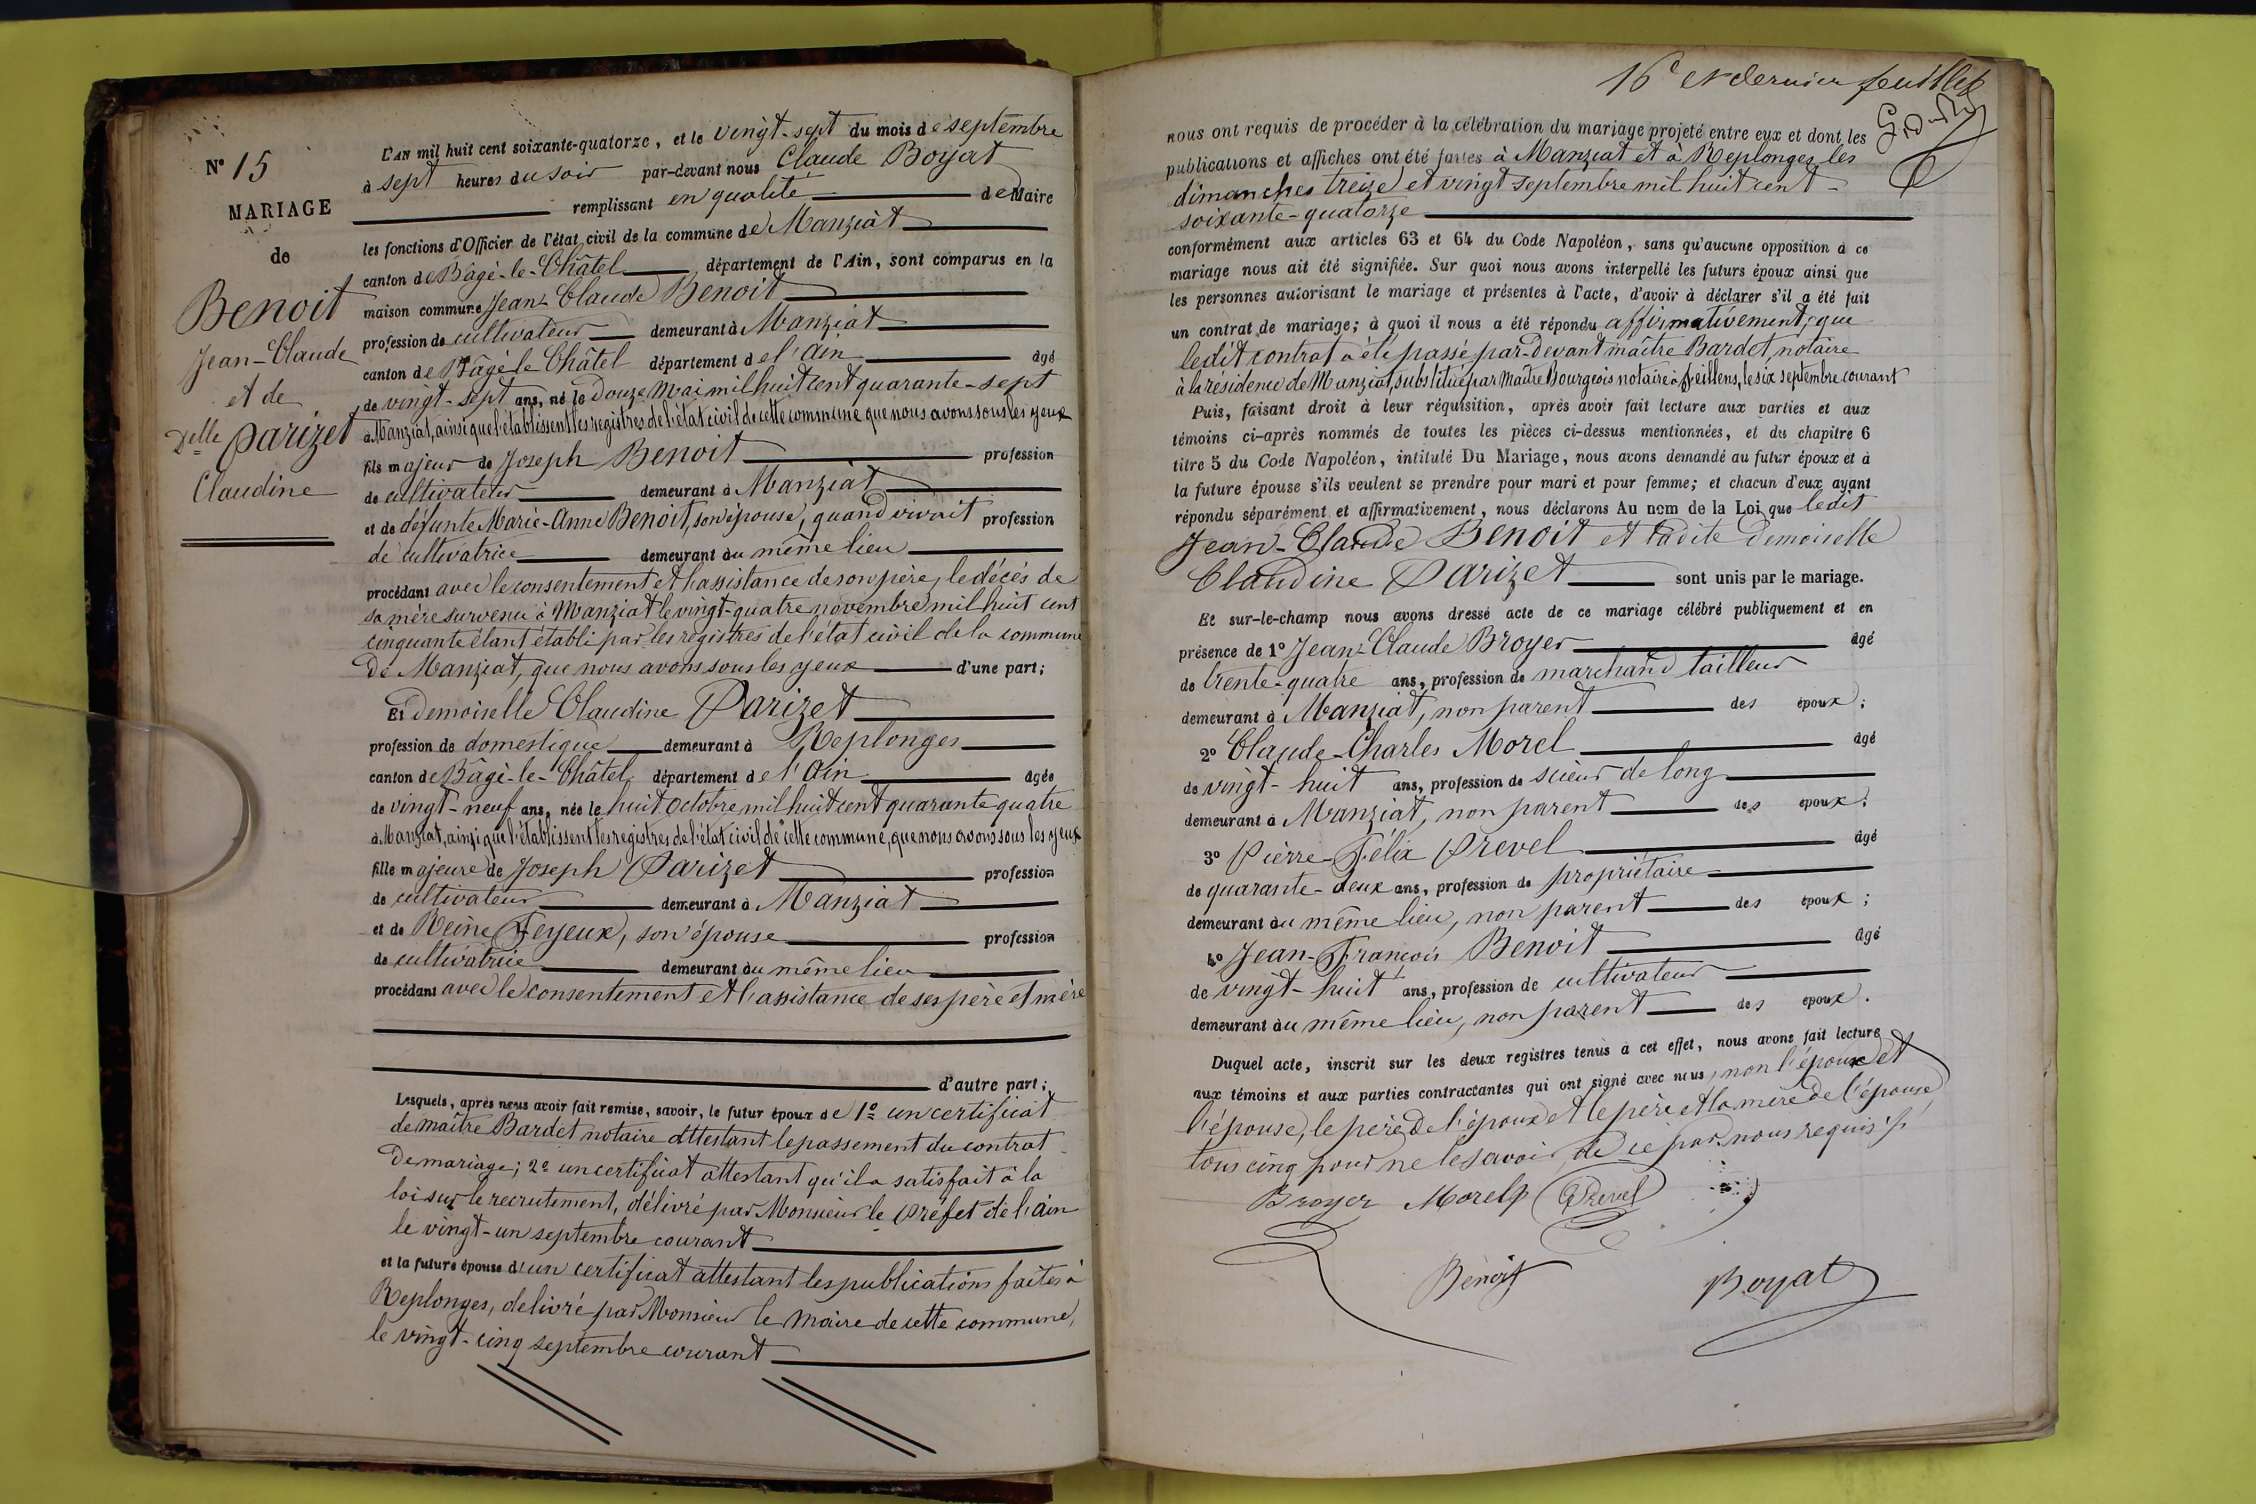 N° 15
MARIAGE
de
Benoit
Jean-Claude
et de
Delle Parizet
Claudine
L'AN mil huit cent soixante-quatorze, et le vingt-sept du mois de septembre
à sept heures du soir par-devant nous Claude Boyat
remplissant en qualité de Maire
les fonctions d'Officier de l'état civil de la commune de Manziat
canton de Bâgé-le-Châtel département de l'Ain, sont comparus en la
maison commune Jean-Claude Benoit
profession de cultivateur demeurant à Manziat
canton de Bâgé-le-Châtel département de l'Ain âgé
de vingt-sept ans, né le douze Mai mil huit cent quarante-sept
à Manziat, ainsi que l'établissent les registres de l'état civil de cette commune que nous avons sous les yeux
fils majeur de Joseph Benoit profession
de cultivateur demeurant à Manziat
et de défunte Marie-Anne Benoit, son épouse, quand vivait profession
de cultivatrice demeurant au même lieu
procédant avec le consentement et l'assistance de son père, le décès de
sa mère survenu à Manziat le vingt-quatre novembre mil huit cent
cinquante étant établi par les registres de l'état civil de la commune
de Manziat, que nous avons sous les yeux d'une part;
Et demoiselle Claudine Parizet
profession de domestique demeurant à Replonges
canton de Bâgé-le-Châtel département de l'Ain âgée
de vingt-neuf ans, née le huit Octobre mil huit cent quarante quatre
à Manziat, ainsi que l'établissent les registres de l'état civil de cette commune, que nous avons sous les yeux
fille majeure de Joseph Parizet profession
de cultivateur demeurant à Manziat
et de Reine Feyeux, son épouse profession
de cultivatrice demeurant au même lieu
procédant avec le consentement et l'assistance de ses père et mère
d'autre part;
Lesquels, après nous avoir fait remise, savoir, le futur époux de 1° un certificat
de maître Bardet notaire attestant le passement du contrat
de mariage; 2° un certificat attestant qu'il a satisfait à la
loi sur le recrutement, délivré par Monsieur le Préfet de l'Ain
le vingt-un septembre courant
et la future épouse d'un certificat attestant les publications faites à
Replonges, délivré par Monsieur le Maire de cette commune,
le vingt-cinq septembre courant
16e et dernier feuillet
nous ont requis de procéder à la célébration du mariage projeté entre eux et dont les
publications et affiches ont été faites à Manziat et à Replonges les
dimanches treize et vingt septembre mil huit cent
soixante-quatorze
conformément aux articles 63 et 64 du Code Napoléon, sans qu'aucune opposition à ce
mariage nous ait été signifiée. Sur quoi nous avons interpellé les futurs époux ainsi que
les personnes autorisant le mariage et présentes à l'acte, d'avoir à déclarer s'il a été fait
un contrat de mariage; à quoi il nous a été répondu affirmativement, que
ledit contrat a été passé par-devant maître Bardet, notaire
à la résidence de Manziat, substitué par Maître Bourgeois notaire à Feillens, le six septembre courant
Puis, faisant droit à leur réquisition, après avoir fait lecture aux parties et aux
témoins ci-après nommés de toutes les pièces ci-dessus mentionnées, et du chapitre 6
titre 5 du Code Napoléon, intitulé Du Mariage, nous avons demandé au futur époux et à
la future épouse s'ils veulent se prendre pour mari et pour femme; et chacun d'eux ayant
répondu séparément et affirmativement, nous déclarons Au nom de la Loi que ledit
Jean-Claude Benoit et ladite demoiselle
Claudine Parizet sont unis par le mariage.
Et sur-le-champ nous avons dressé acte de ce mariage célébré publiquement et en
présence de 1° Jean-Claude Broyer âgé
de trente-quatre ans, profession de marchand tailleur
demeurant à Manziat, non parent des époux;
2° Claude-Charles Morel âgé
de vingt-huit ans, profession de scieur de long
demeurant à Manziat, non parent des époux;
3° Pierre-Félix Prevel âgé
de quarante-deux ans, profession de propriétaire
demeurant au même lieu, non parent des époux;
4° Jean-François Benoit âgé
de vingt-huit ans, profession de cultivateur
demeurant au même lieu, non parent des époux.
Duquel acte, inscrit sur les deux registres tenus à cet effet, nous avons fait lecture
aux témoins et aux parties contractantes qui ont signé avec nous, non l'époux et
l'épouse, le père de l'époux et le père et la mère de l'épouse
tous cinq pour ne le savoir, de ce par nous requis
Broyer Morel Prevel
Benoit Boyat